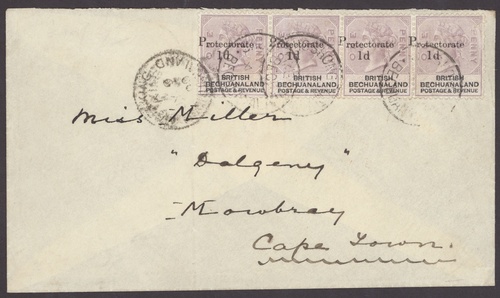 Protectorate Protectorate Protectorate Protectorate
1d 1d 1d 1d
BRITISH BRITISH BRITISH BRITISH
BECHUANALAND BECHUANALAND BECHUANALAND BECHUANALAND
POSTAGE & REVENUE POSTAGE & REVENUE POSTAGE & REVENUE POSTAGE & REVENUE
Miss Miller
"Dalgeny"
Mowbray
Cape Town.